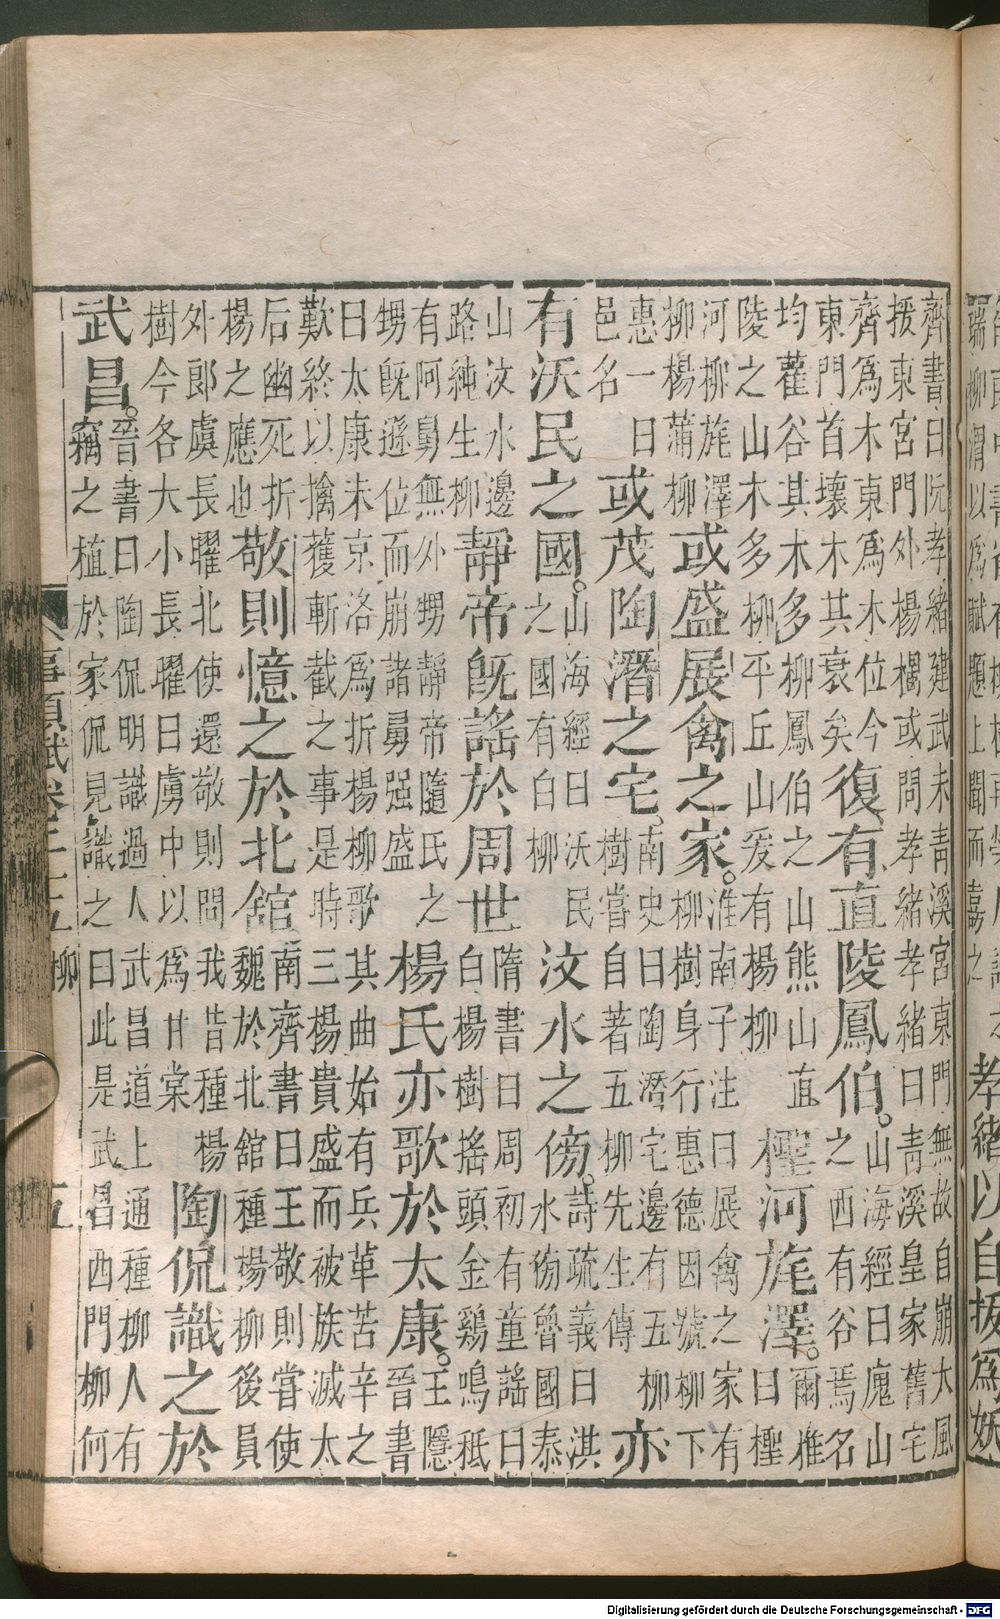 孝緒以自拔為妖
齊書曰阮孝緒建武末青溪宮東門無故自崩大風
援東宮門外楊樹或問孝緒孝緒曰青溪皇家舊宅
齊為木東為木位今
東門首壞木其衰矣
復有直陵鳳伯。
山海經曰廆山
之西有谷焉名
均雚谷其木多柳鳳伯之山熊山直
陵之山木多柳平丘山爰有楊柳
檉河旄澤。
爾雅
曰檉
河柳旄澤
柳楊蒲柳
或盛展禽之家。
淮南子注曰展禽之家有
柳樹身行惠德因號柳下
惠一曰
邑名
或茂陶潛之宅。
南史曰陶潛宅邊有五柳
樹嘗自著五柳先生傳
亦
有沃民之國。
山海經曰沃民
之國有白柳
汶水之傍。
詩疏義曰淇
水旁魯國泰
山汶水邊
路純生柳
靜帝旣謠於周世
隋書曰周初有童謠曰
白楊樹搖頭金鷄鳴秪
有阿舅無外甥靜帝隨氏之
甥旣遜位而崩諸舅强盛
楊氏亦歌於太康。
王隱
晉書
曰太康末京洛為折楊柳歌其曲始有兵革苦辛之
歎終以擒獲斬截之事是時三楊貴盛而被族滅太
后幽死折
楊之應也
敬則憶之於北舘
南齊書曰王敬則嘗使
魏於北舘種楊柳後員
外郎虞長曜北使還敬則問我昔種楊
樹今各大小長曜曰虜中以為甘棠
陶侃識之於
武昌。
晉書曰陶侃明識過人武昌道上通種柳人有
竊之植於家侃見識之曰此是武昌西門柳何
事類賦卷二十五 柳 五
Digitalisierung gefördert durch die Deutsche Forschungsgemeinschaft - DFG